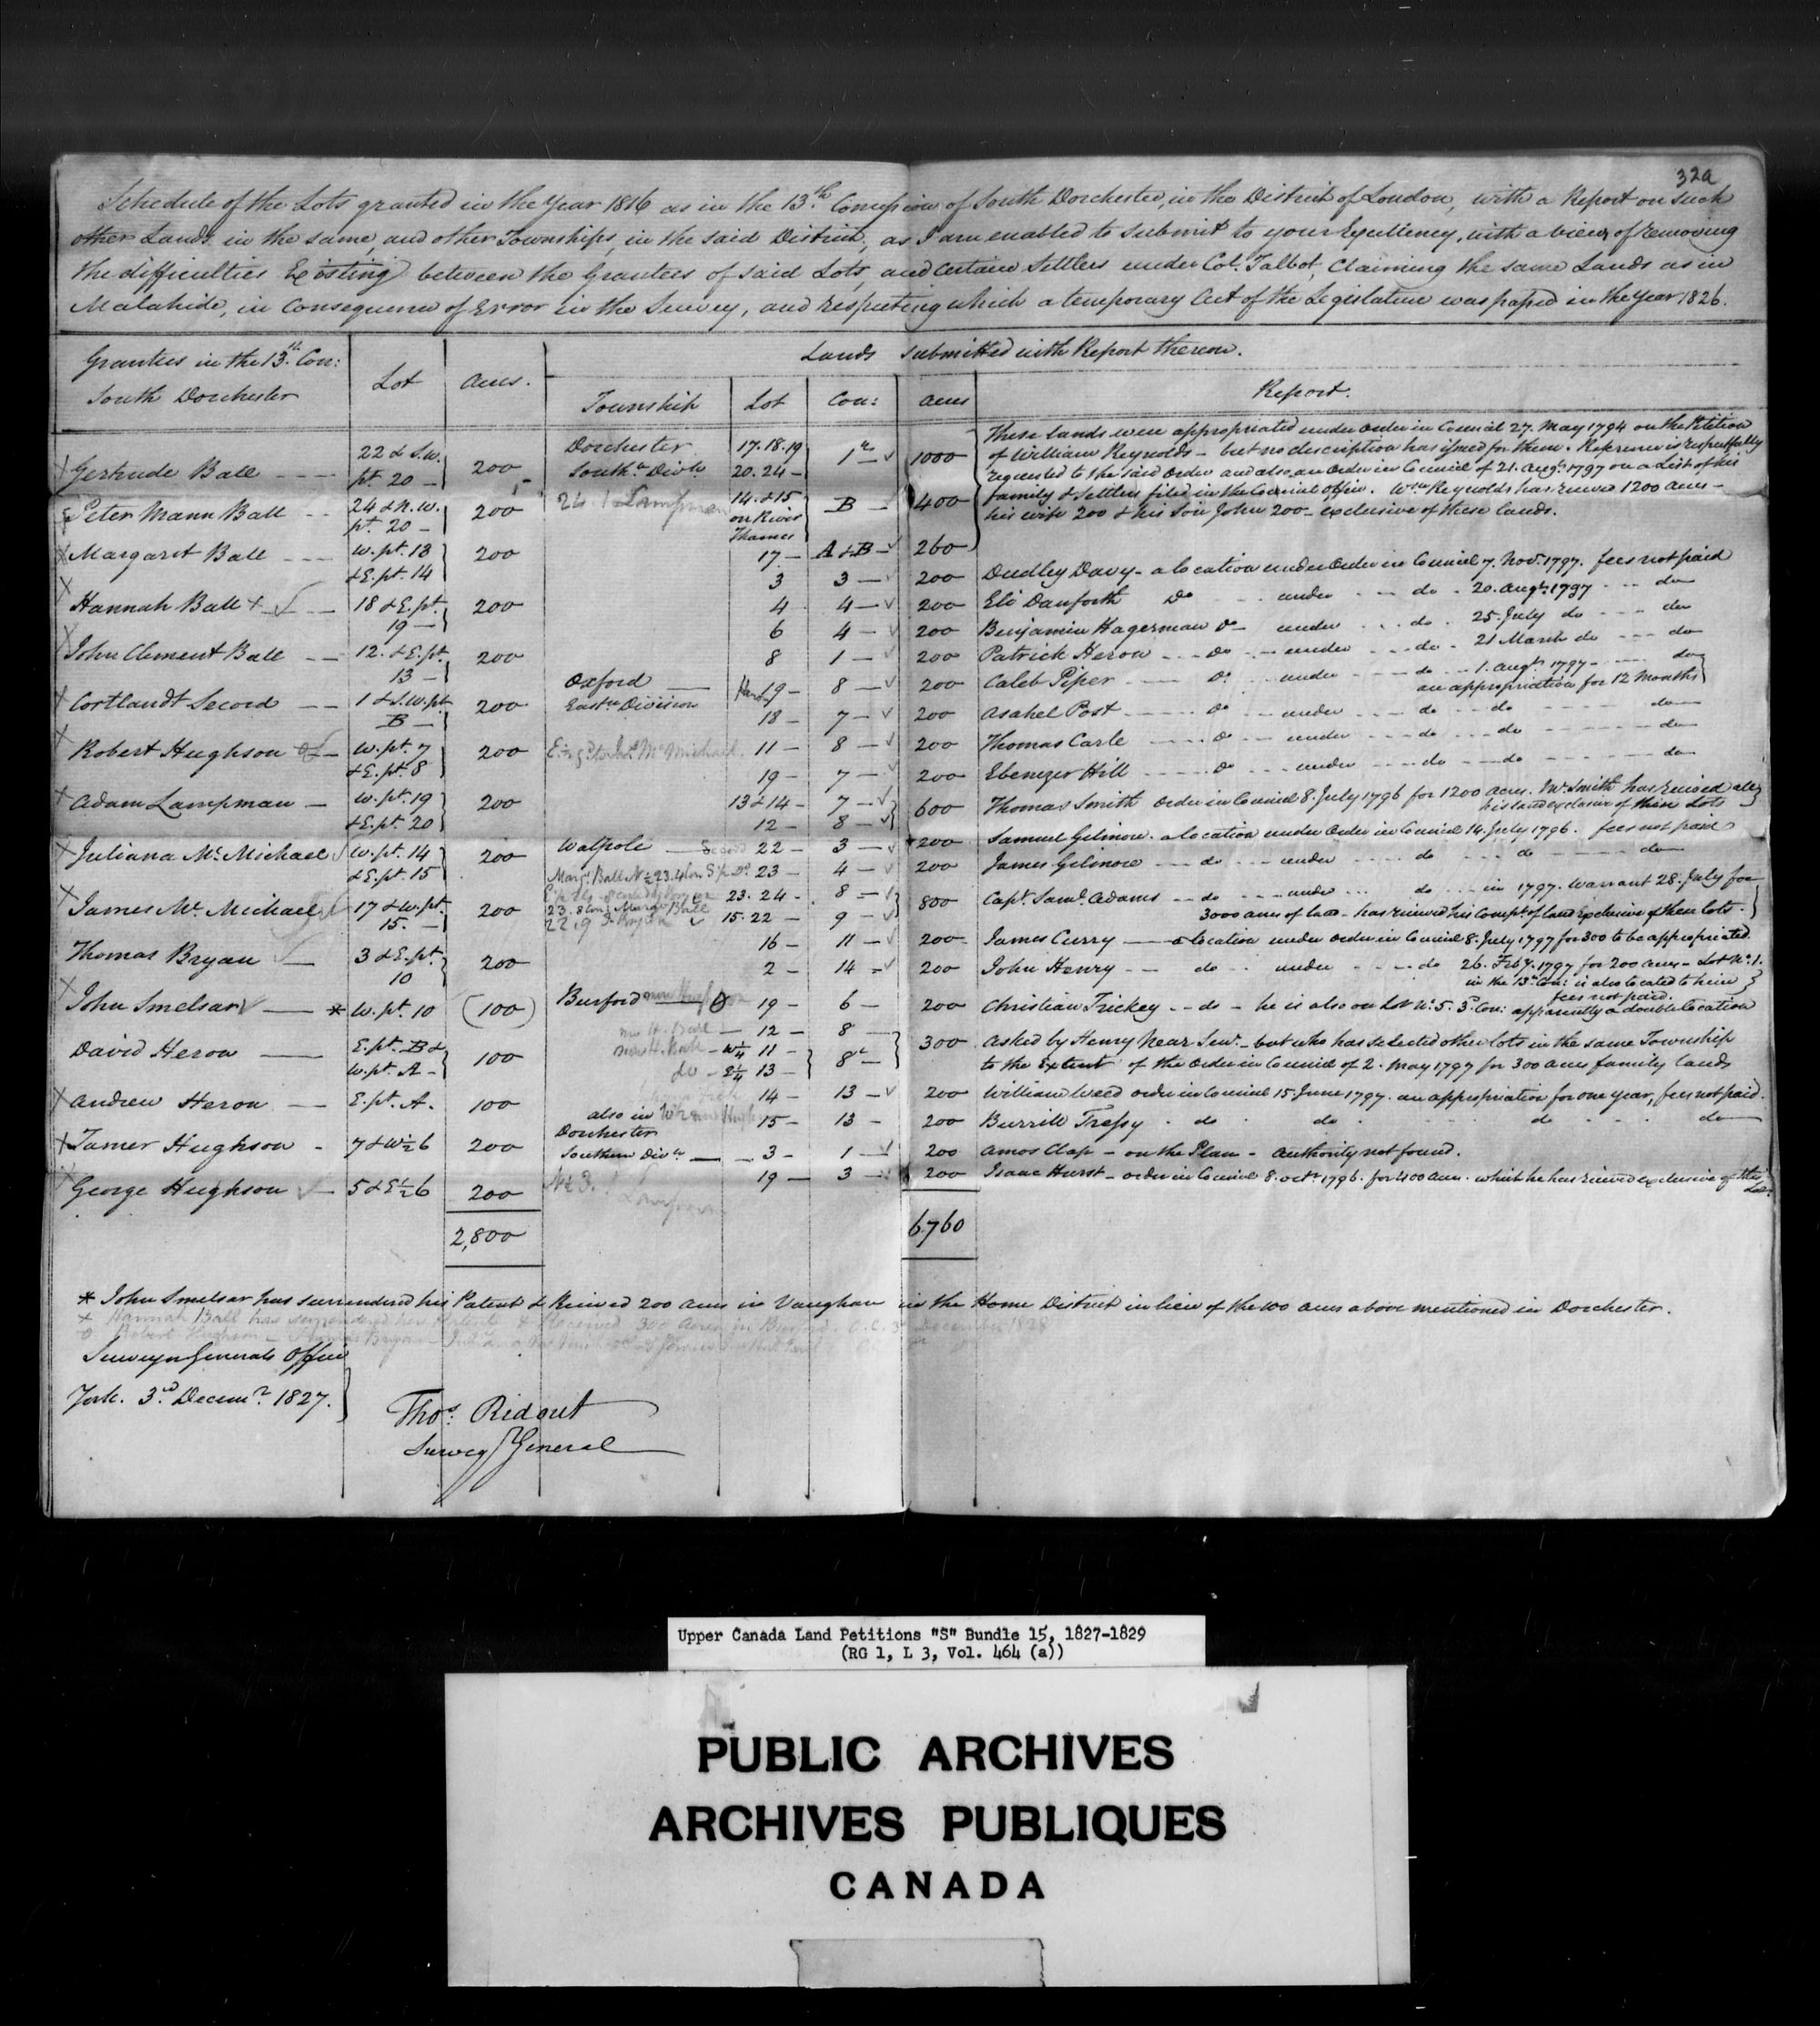 32a
Schedule of the Lots granted in the Year 1816 as in the 13.th Concession of South Dorchester, in the District of London, with a Report on such
other Lands in the same, and other Townships, in the said District, as I am enabled to submit to your Excellency, with a view of removing
the difficulties Existing between the Grantees of said Lots, and certain Settlers under Col. Talbot, Claiming the same Lands as in
Malahide, in Consequence of Error in the Survey, and respecting which a temporary Act of the Legislature was passed in the Year 1826.
Grantees in the 13.th Con: South Dorchester
Lot
Acres.
Lands submitted with Report thereon.
Township
Lot
Con:
Acres
Report.
Gertrude Ball 22 & S.W. pt 20 200
Peter Mann Ball 24 & N.W. pt. 20 200
Margaret Ball W. pt. 18 & E. pt. 14 200
Hannah Ball + 18 & E. pt. 19 200
John Clement Ball 12. & E. pt. 13 200
Cortlandt Secord 1 & S.W. pt. B 200
Robert Hughson W. pt. 7 & E. pt. 8 200
Adam Lampman W. pt. 19 & E. pt. 20 200
Juliana Mc Michael W. pt. 14 & E. pt. 15 200
James Mc Michael 17 & W. pt. 15. 200
Thomas Bryan 3 & E. pt. 10 200
John Smelsar * W. pt. 10 (100)
David Heron E. pt. B & W. pt. A 100
Andrew Heron E. pt. A. 100
Tamer Hughson 7 & W ½ 6 200
George Hughson 5 & E ½ 6 200
2,800
Dorchester South.n Div.n 17.18.19 20.24 1st 1000
24 / Lampman 14. & 15 on River Thames B 400
17 A & B 260
These lands were appropriated under order in Council 27. May 1794 on the Petition
of William Reynolds - but no description has issued for them. Reference is respectfully
requested to the said order and also an order in Council of 21. Augt. 1797 on a List of his
family & Settlers filed in the Council office. Wm. Reynolds has received 1200 acres -
his wife 200 & his Son John 200 - exclusive of these lands.
3 3 200 Dudley Davy - a location under Order in Council 7. Novr. 1797. fees not paid
4 4 200 Eli Danforth Do under do 20. Augt. 1797 do
6 4 200 Benjamin Hagerman Do under do 25. July do do
8 1 200 Patrick Heron Do under do 21 March do do
Oxford East.n Division 19 8 200 Caleb Piper Do under do 1. Augt. 1797 do
an appropriation for 12 months
18 7 200 Asahel Post Do under do do do
11 8 200 Thomas Carle Do under do do do
19 7 200 Ebenezer Hill Do under do do do
13 & 14 7 12 8 600 Thomas Smith order in Council 8. July 1796 for 1200 acres. Mr. Smith has received all
his land exclusive of these Lots
Walpole 22 3 200 Samuel Gilmore. a location under Order in Council 14. July 1796. fees not paid
23 4 200 James Gilmore do under do do do
23. 24 8 15. 22 9 800 Capt. Saml. Adams do under do in 1797. Warrant 28. July for
3000 acres of land - has received his compt. of land Exclusive of these lots.
16 11 200 James Curry a location under order in Council 8. July 1797 for 300 to be appropriated
2 14 200 John Henry do under do 26. Feby. 1797 for 200 acres - Lot No. 1.
in the 13th Con: is also located to him
fees not paid.
Burford 19 6 200 Christian Trickey do - he is also on Lot No. 5. 3d. Con: apparently a double location
12 8 W ¼ 11 do E ¼ 13 8 300 Asked by Henry Near Senr. - but who has selected other lots in the same Township
to the Extent of the Order in Council of 2. May 1797 for 300 acres family lands
14 13 200 William Weed order in Council 15. June 1797. an appropriation for one year, fees not paid.
15 13 200 Burrill Tressy do do do do
also in Dorchester Southern Divn. 3 1 200 Amos Clap - on the Plan - authority not found.
19 3 200 Isaac Hurst - order in Council 8. Octr. 1796. for 400 acres. which he has received exclusive of this Lot.
6760
* John Smelsar has surrendered his Patent & Received 200 acres in Vaughan in the Home District in lieu of the 100 acres above mentioned in Dorchester.
+ Hannah Ball has surrendered her Patent & Received 300 acres in Burford. O.C. 3d December 1828
Surveyor Generals Office
York. 3.rd Decemr. 1827.
Thos. Ridout
Survey.r General
Upper Canada Land Petitions "S" Bundle 15, 1827-1829
(RG 1, L 3, Vol. 464 (a))
PUBLIC ARCHIVES
ARCHIVES PUBLIQUES
CANADA